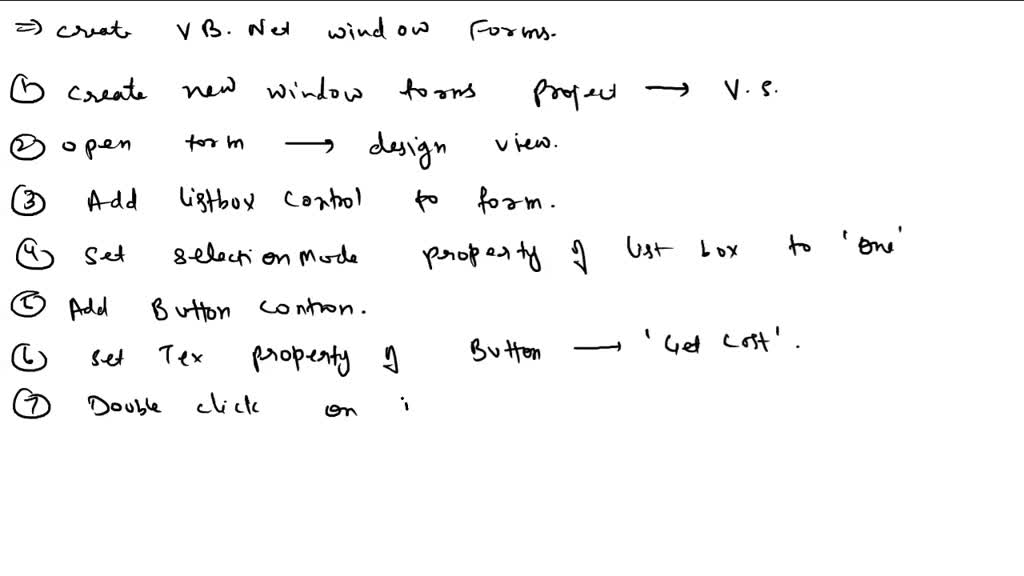 ⇒ create VB.Net window Forms.
① create new window forms project → V.S.
② open form → design view.
③ Add listbox control to form.
④ set selectionMode property of list box to 'one'
⑤ Add Button contron.
⑥ set Tex property of Button → 'Get cost'.
⑦ Double click on i